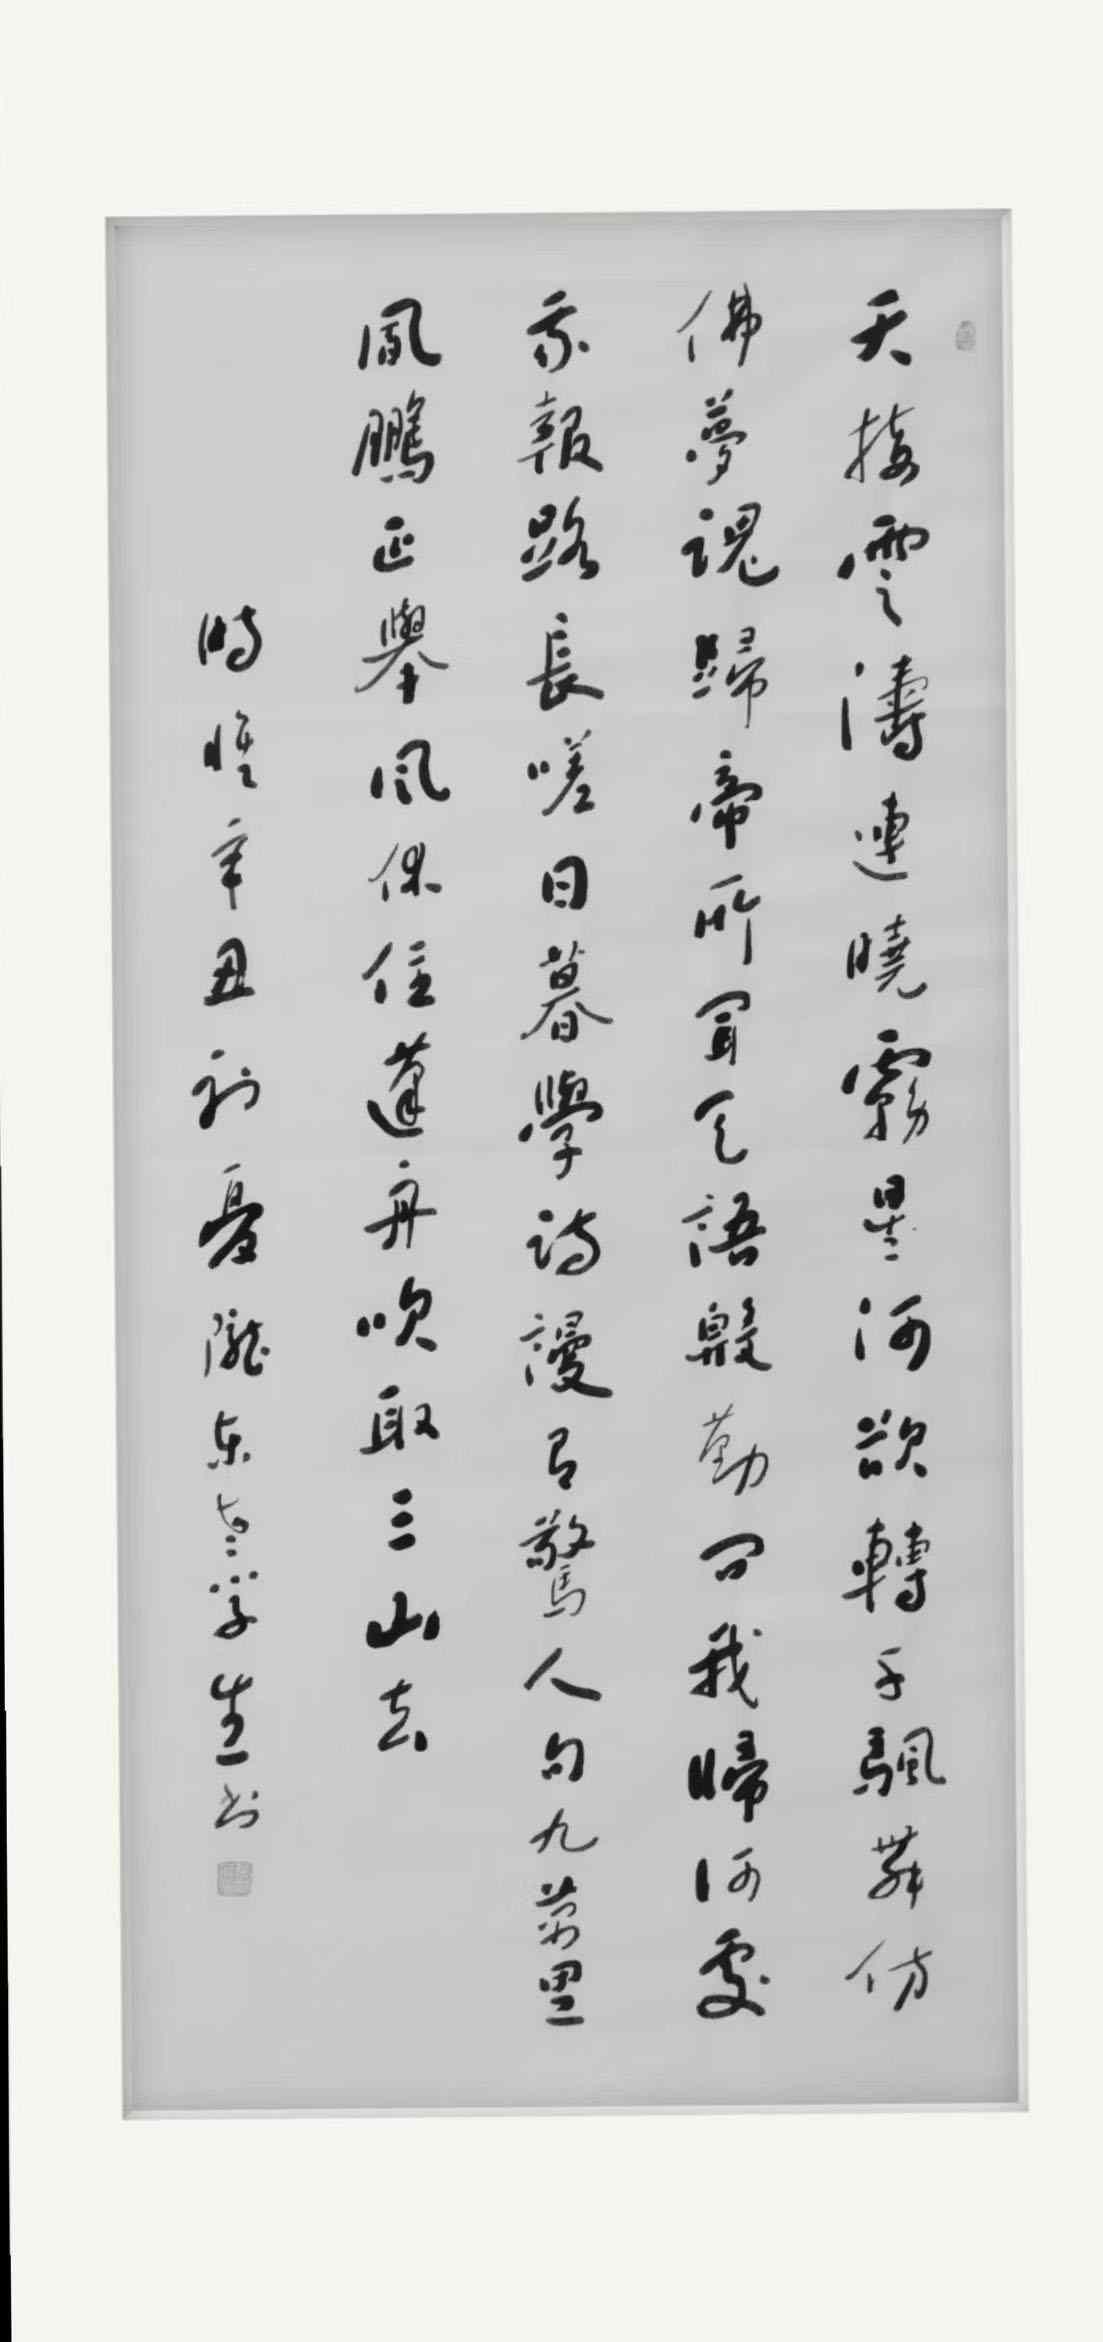 天接雲濤連曉霧星河欲轉千颿舞仿
佛夢魂歸帝所聞天語殷勤問我歸何處
我報路長嗟日暮學詩謾有驚人句九萬里
風鵬正舉風休住蓬舟吹取三山去
時惟辛丑初夏隴東老学生书